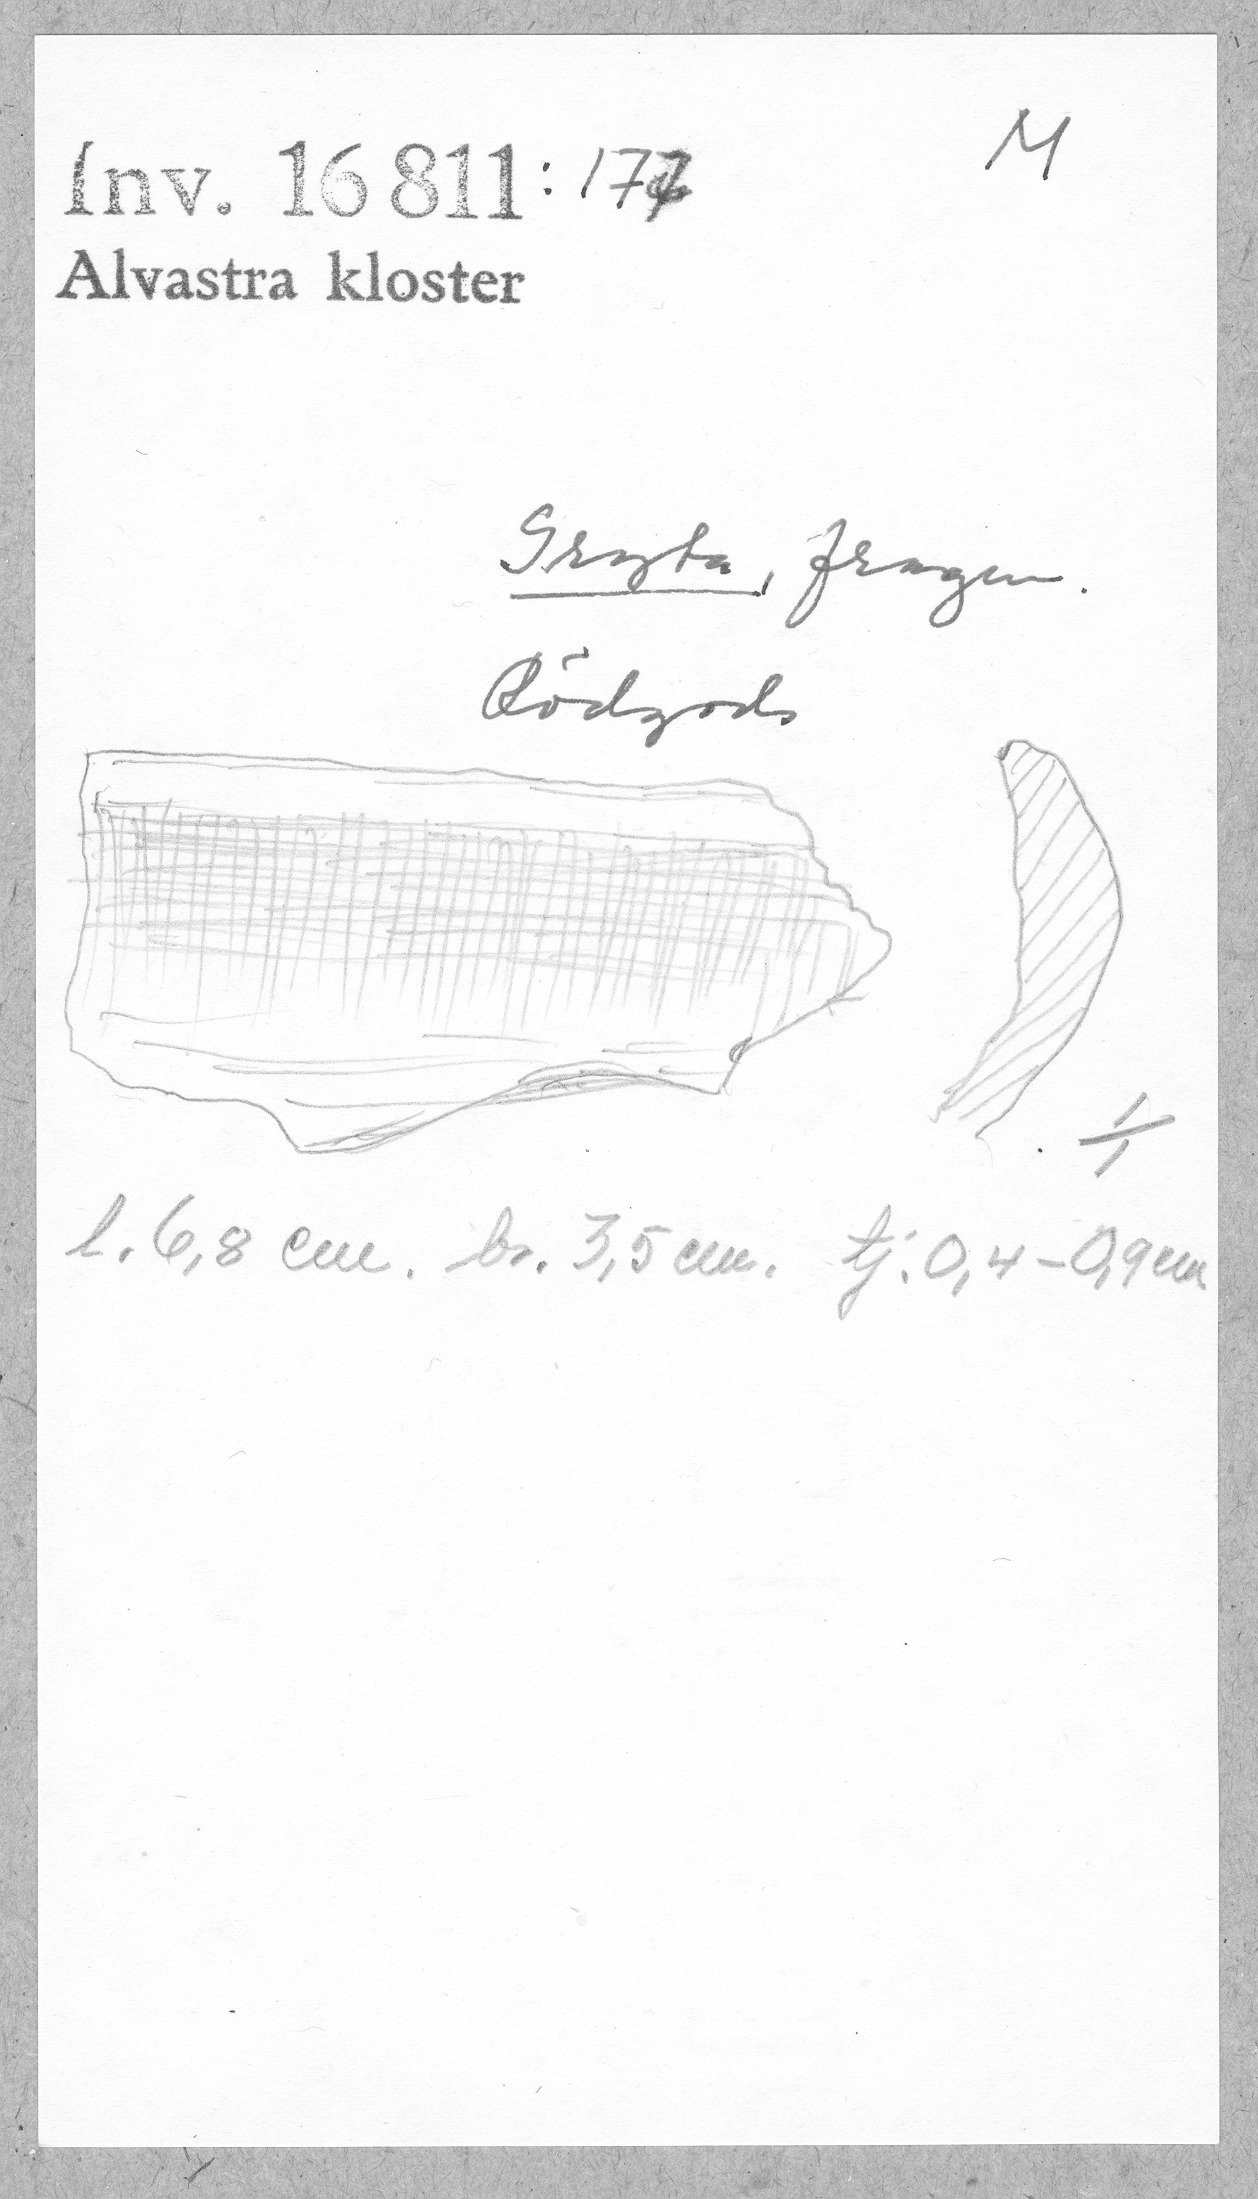 Inv. 16 811:177 M
Alvastra kloster
Gryta, fragm.
Rödgods
1/1
l. 6,8 cm. br. 3,5 cm. tj. 0,4-0,9 cm